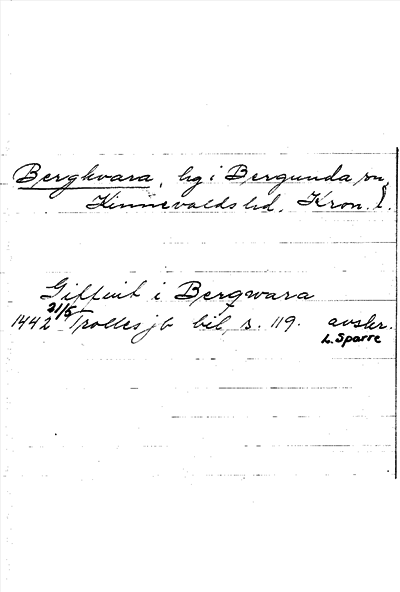 Bergkvara, hg i Bergunda sn,
Kinnevalds hd. Kron. l.
Giffuit i Bergwara
1442 31/5 Trolles jb bil, s. 119. avskr.
L. Sparre